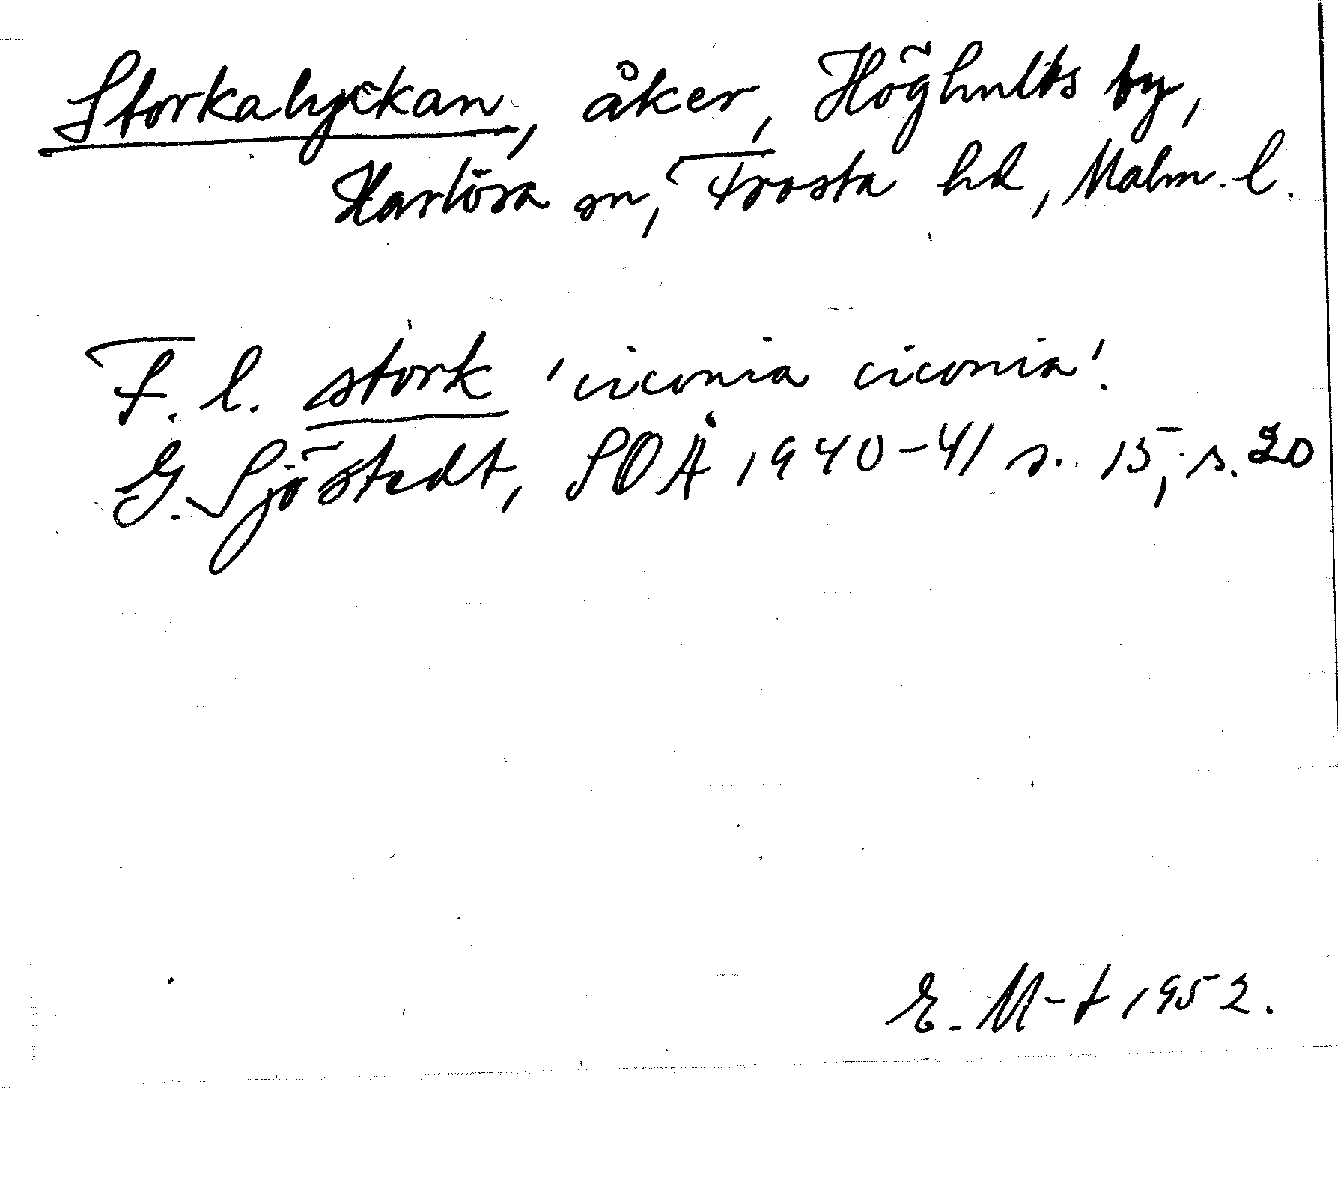 Storkalyckan, åker, Höghults by,
Harlösa sn, Frosta hd, Malm. l.
F. l. stork 'ciconia ciconia'.
G. Sjöstedt, SOÅ 1940-41 s. 15, s. 20
E. M-t 1952.